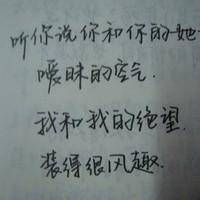 听你说你和你的她
暧昧的空气.
我和我的绝望.
装得很风趣.